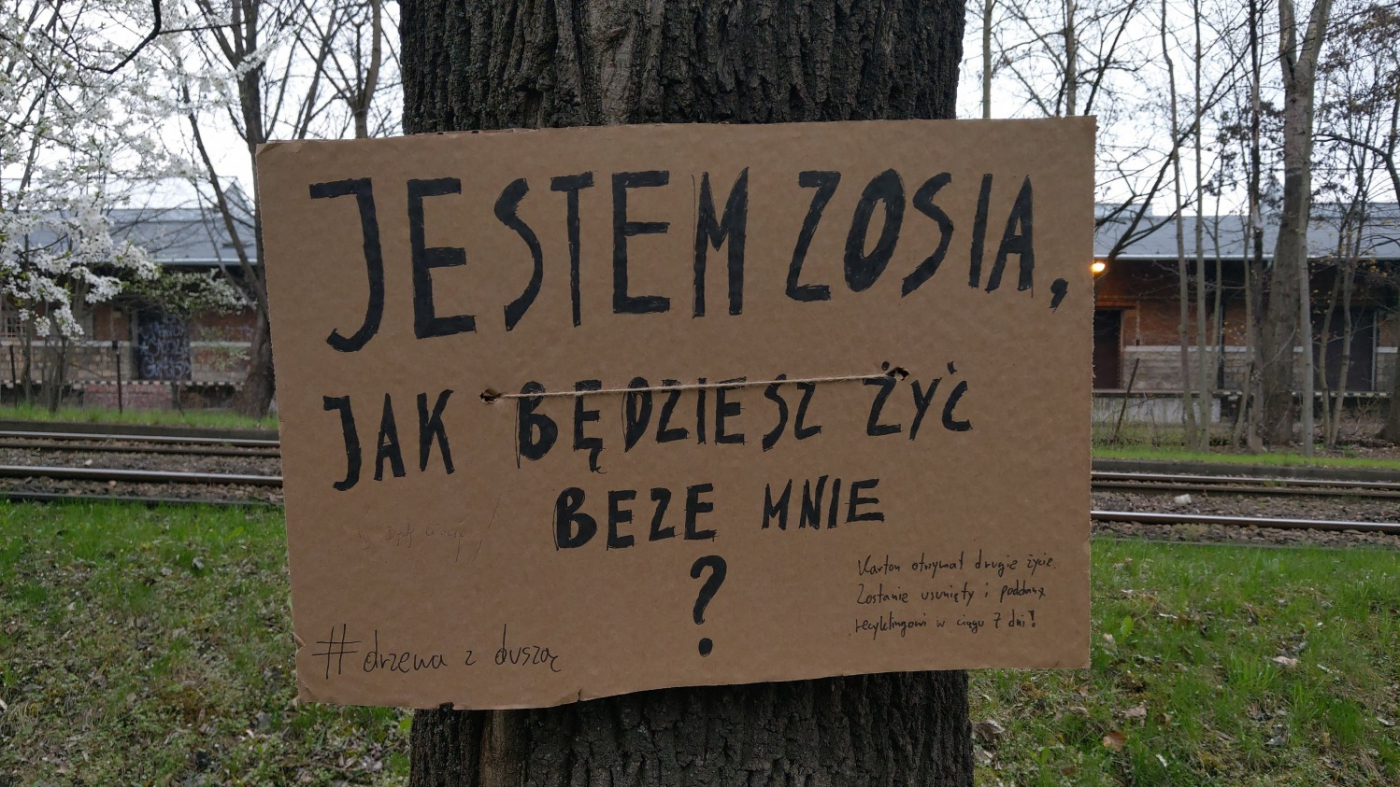 JESTEM ZOSIA,
JAK BĘDZIESZ ŻYĆ
BEZE MNIE
?
Karton otrzymał drugie życie.
Zostanie usunięty i poddany
recyklingowi w ciągu 7 dni!
#drzewa z duszą